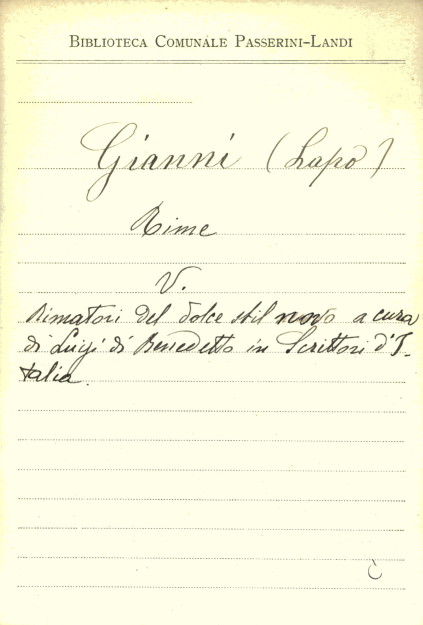 BIBLIOTECA COMUNALE PASSERINI-LANDI
Gianni (Lapo)
Rime
V.
Rimatori del dolce stil novo a cura
di Luigi di Benedetto in Scrittori d'I-
talia.